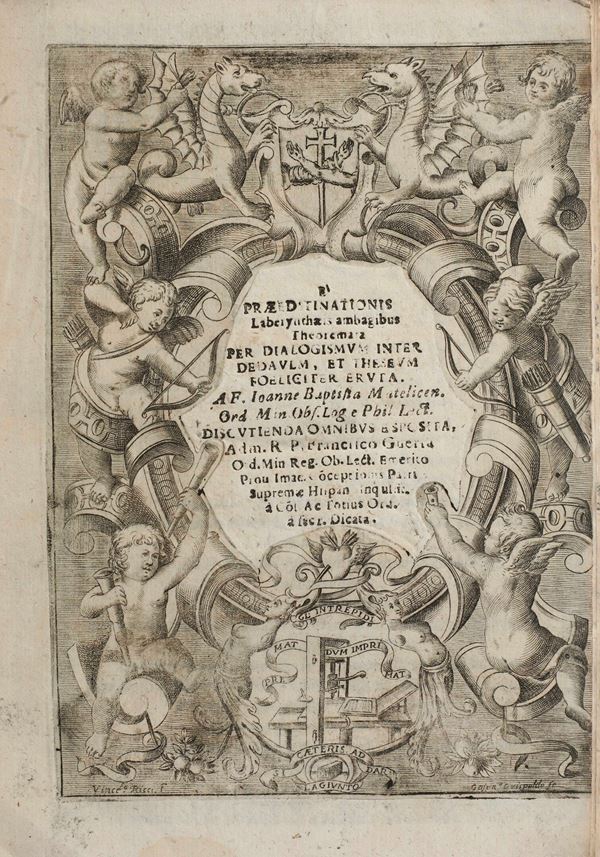 PRÆEDTINATIONIS
Laberynthæis ambagibus
Theoremata
PER DIALOGISMVM INTER
DEDAVLM, ET THESEVM
FOELIGITER ERVTA.
A F. Ioanne Baptista Matelicen.
Ord Min Obs. Log e Phil Lect.
DISCVTIENDA OMNIBVS EXPOSITA,
Adm. R. P. Francisco Guerra
Ord. Min Reg. Ob. Lect. Emerito
Prou Imac. Cōceptionis Patri
Supremæ Hispan Inquisit.
à Cōs. Ac Totius Ord.
à secr. Dicata.
GE INTREPIDE
MAT DVM IMPRI
PRE MAT
CÆTERIS AD
SI DART
LAGIVNTO
Vince.º Ricci. f.